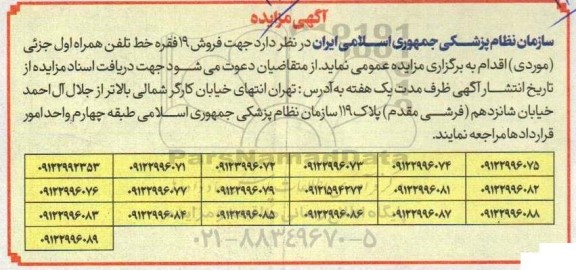 آگهی مزایده
سازمان نظام پزشکی جمهوری اسلامی ایران در نظر دارد جهت فروش ۱۹ فقره خط تلفن همراه اول جزئی
(موردی) اقدام به برگزاری مزایده عمومی نماید. از متقاضیان دعوت می شود جهت دریافت اسناد مزایده از
تاریخ انتشار آگهی ظرف مدت یک هفته به آدرس : تهران انتهای خیابان کارگر شمالی بالاتر از جلال آل احمد
خیابان شانزدهم (فرشی مقدم) پلاک ۱۱۹ سازمان نظام پزشکی جمهوری اسلامی طبقه چهارم واحد امور
قراردادها مراجعه نمایند.
۰۹۱۲۲۹۹۶۰۷۵ ۰۹۱۲۲۹۹۶۰۷۴ ۰۹۱۲۲۹۹۶۰۷۳ ۰۹۱۲۲۹۹۶۰۷۲ ۰۹۱۲۲۹۹۶۰۷۱ ۰۹۱۲۲۹۹۲۳۵۳
۰۹۱۲۲۹۹۶۰۸۲ ۰۹۱۲۲۹۹۶۰۸۱ ۰۹۱۲۱۵۹۴۲۷۴ ۰۹۱۲۲۹۹۶۰۷۹ ۰۹۱۲۲۹۹۶۰۷۷ ۰۹۱۲۲۹۹۶۰۷۶
۰۹۱۲۲۹۹۶۰۸۸ ۰۹۱۲۲۹۹۶۰۸۷ ۰۹۱۲۲۹۹۶۰۸۶ ۰۹۱۲۲۹۹۶۰۸۵ ۰۹۱۲۲۹۹۶۰۸۴ ۰۹۱۲۲۹۹۶۰۸۳
۰۹۱۲۲۹۹۶۰۸۹
۰۲۱-۸۸۳۴۹۶۷۰-۵